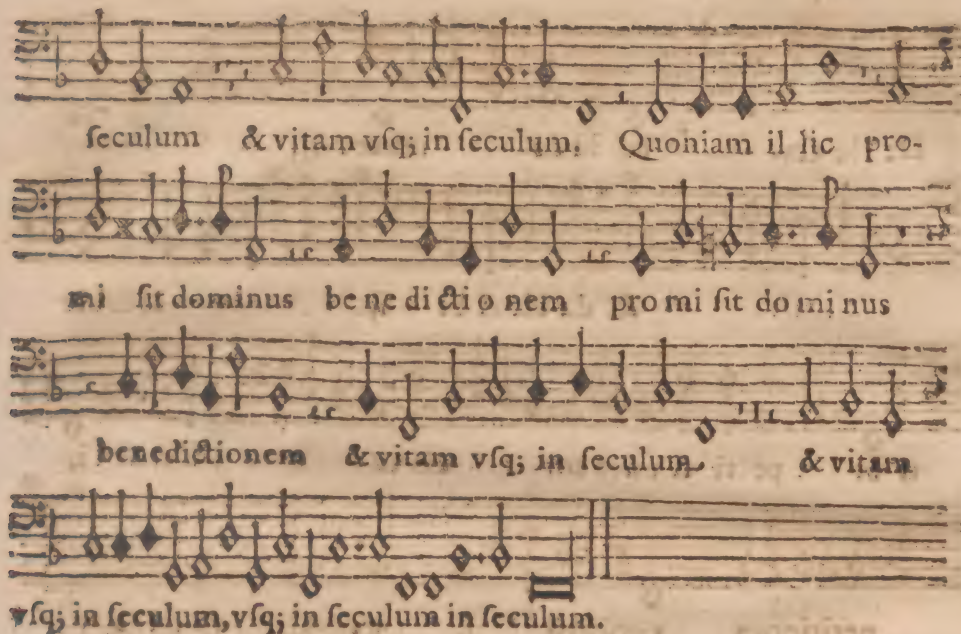 ſeculum & vitam vſq; in ſeculum. Quoniam il lic pro-
mi ſit dominus be ne di cti o nem pro mi ſit do mi nus
benedictionem & vitam vſq; in ſeculum & vitam
vſq; in ſeculum, vſq; in ſeculum in ſeculum.